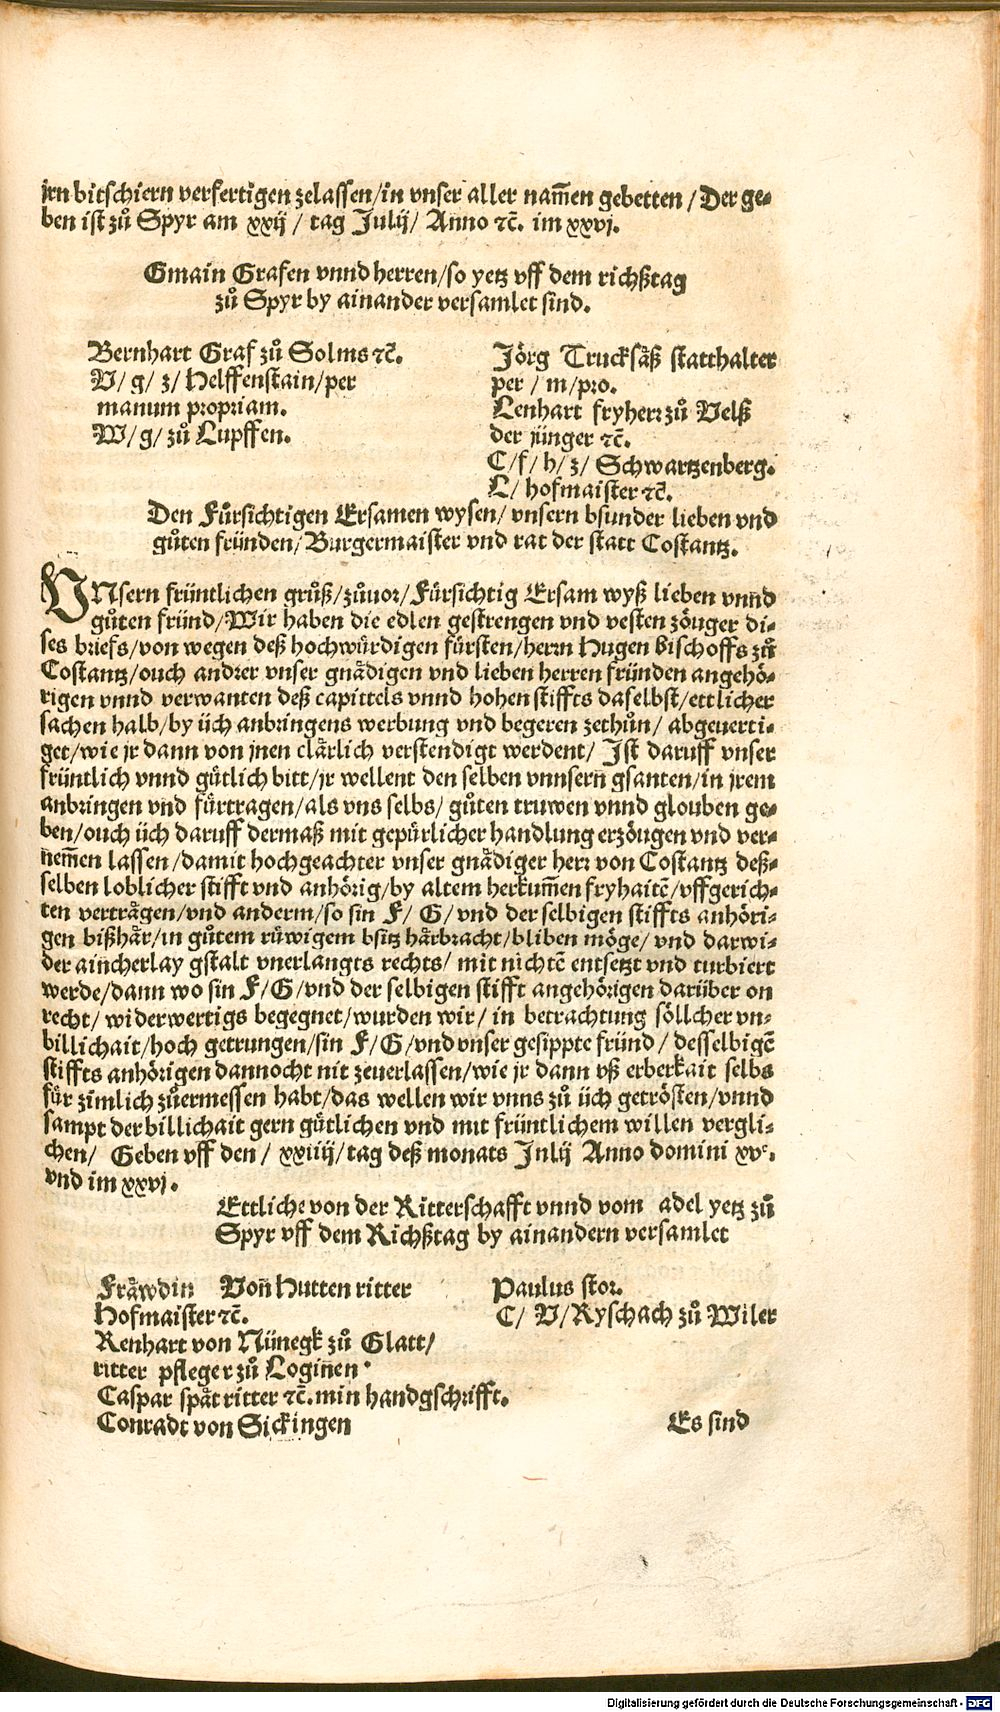 jrn bitschiern verfertigen zelassen/in vnser aller nam̄en gebetten/Der ge⸗
ben ist zů Spyr am xxij/tag Julij/Anno ⁊c̄. im xxvj.
Gmain Grafen vnnd herren/so yetz vff dem richßtag
zů Spyr by ainander versamlet sind.
Bernhart Graf zů Solms ⁊c̄.
V/g/z/Helffenstain/per
manum propriam.
W/g/zů Lupffen.
Jörg Trucksäß statthalter
per/m/pro.
Lenhart fryherr zů Velß
der jünger ⁊c̄.
C/f/h/z/Schwartzenberg.
L/hofmaister ⁊c̄.
Den Fürsichtigen Ersamen wysen/vnsern bsunder lieben vnd
gůten fründen/Burgermaister vnd rat der statt Costantz.
VNsern früntlichen grůß/zůuor/Fürsichtig Ersam wyß lieben vnnd
gůten fründ/Wir haben die edlen gestrengen vnd vesten zöuger di⸗
ses briefs/von wegen deß hochwürdigen fürsten/herrn Hugen bischoffs zů
Costantz/ouch andrer vnser gnädigen vnd lieben herren fründen angehö⸗
rigen vnnd verwanten deß capittels vnnd hohen stiffts daselbst/ettlicher
sachen halb/by üch anbringens werbung vnd begeren zethůn/abgeuerti⸗
get/wie jr dann von jnen clärlich verstendigt werdent/Ist daruff vnser
früntlich vnnd gütlich bitt/jr wellent den selben vnnsern gsanten/in jrem
anbringen vnd fürtragen/als vns selbs/gůten truwen vnnd glouben ge⸗
ben/ouch üch daruff dermaß mit gepürlicher handlung erzöugen vnd ver⸗
nem̄en lassen/damit hochgeachter vnser gnädiger herr von Costantz deß⸗
selben loblicher stifft vnd anhörig/by altem herkum̄en fryhaitē/vffgerich⸗
ten verträgen/vnd anderm/so sin F/G/vnd der selbigen stiffts anhöri⸗
gen bißhär/in gůtem rüwigem bsitz härbracht/bliben möge/vnd darwi⸗
der aincherlay gstalt vnerlangts rechts/mit nichtē entsetzt vnd turbiert
werde/dann wo sin F/G/vnd der selbigen stifft angehörigen darüber on
recht/widerwertigs begegnet/wurden wir/in betrachtung söllcher vn⸗
billichait/hoch getrungen/sin F/G/vnd vnser gesippte fründ/desselbigē
stiffts anhörigen dannocht nit zeuerlassen/wie jr dann vß erberkait selbs
für zimlich zůermessen habt/das wellen wir vnns zů üch getrösten/vnnd
sampt der billichait gern gütlichen vnd mit früntlichem willen vergli⸗
chen/Geben vff den/xxiiij/tag deß monats Julij Anno domini xvᶜ.
vnd im xxvj.
Ettliche von der Ritterschafft vnnd vom adel yetz zů
Spyr vff dem Richßtag by ainandern versamlet
Fräwdin Von̄ Hutten ritter
Hofmaister ⁊c̄.
Renhart von Nünegk zů Glatt/
ritter pfleger zů Loginen.
Caspar spät ritter ⁊c̄. min handgschrifft.
Conradt von Sickingen
Paulus stor.
C/V/Ryschach zů Wiler
Es sind
Digitalisierung gefördert durch die Deutsche Forschungsgemeinschaft - DFG